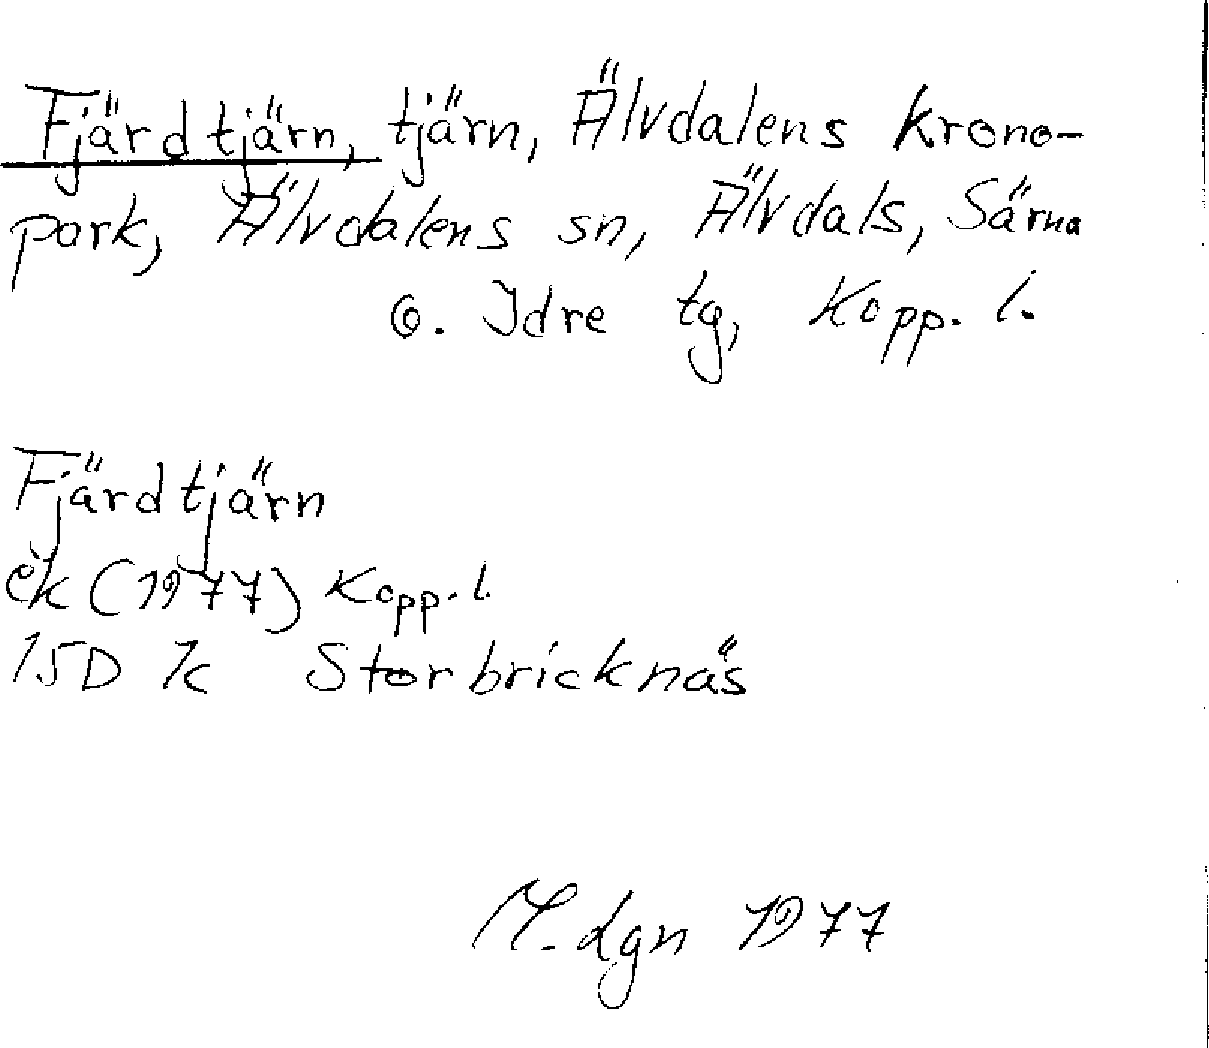 Fjärdtjärn, tjärn, Älvdalens krono-
park, Älvdalens sn, Älvdals, Särna
o. Idre tg, Kopp. l.
Fjärdtjärn
ek (1977) Kopp. l.
15D 7c Storbricknäs
M. Lgn 1977